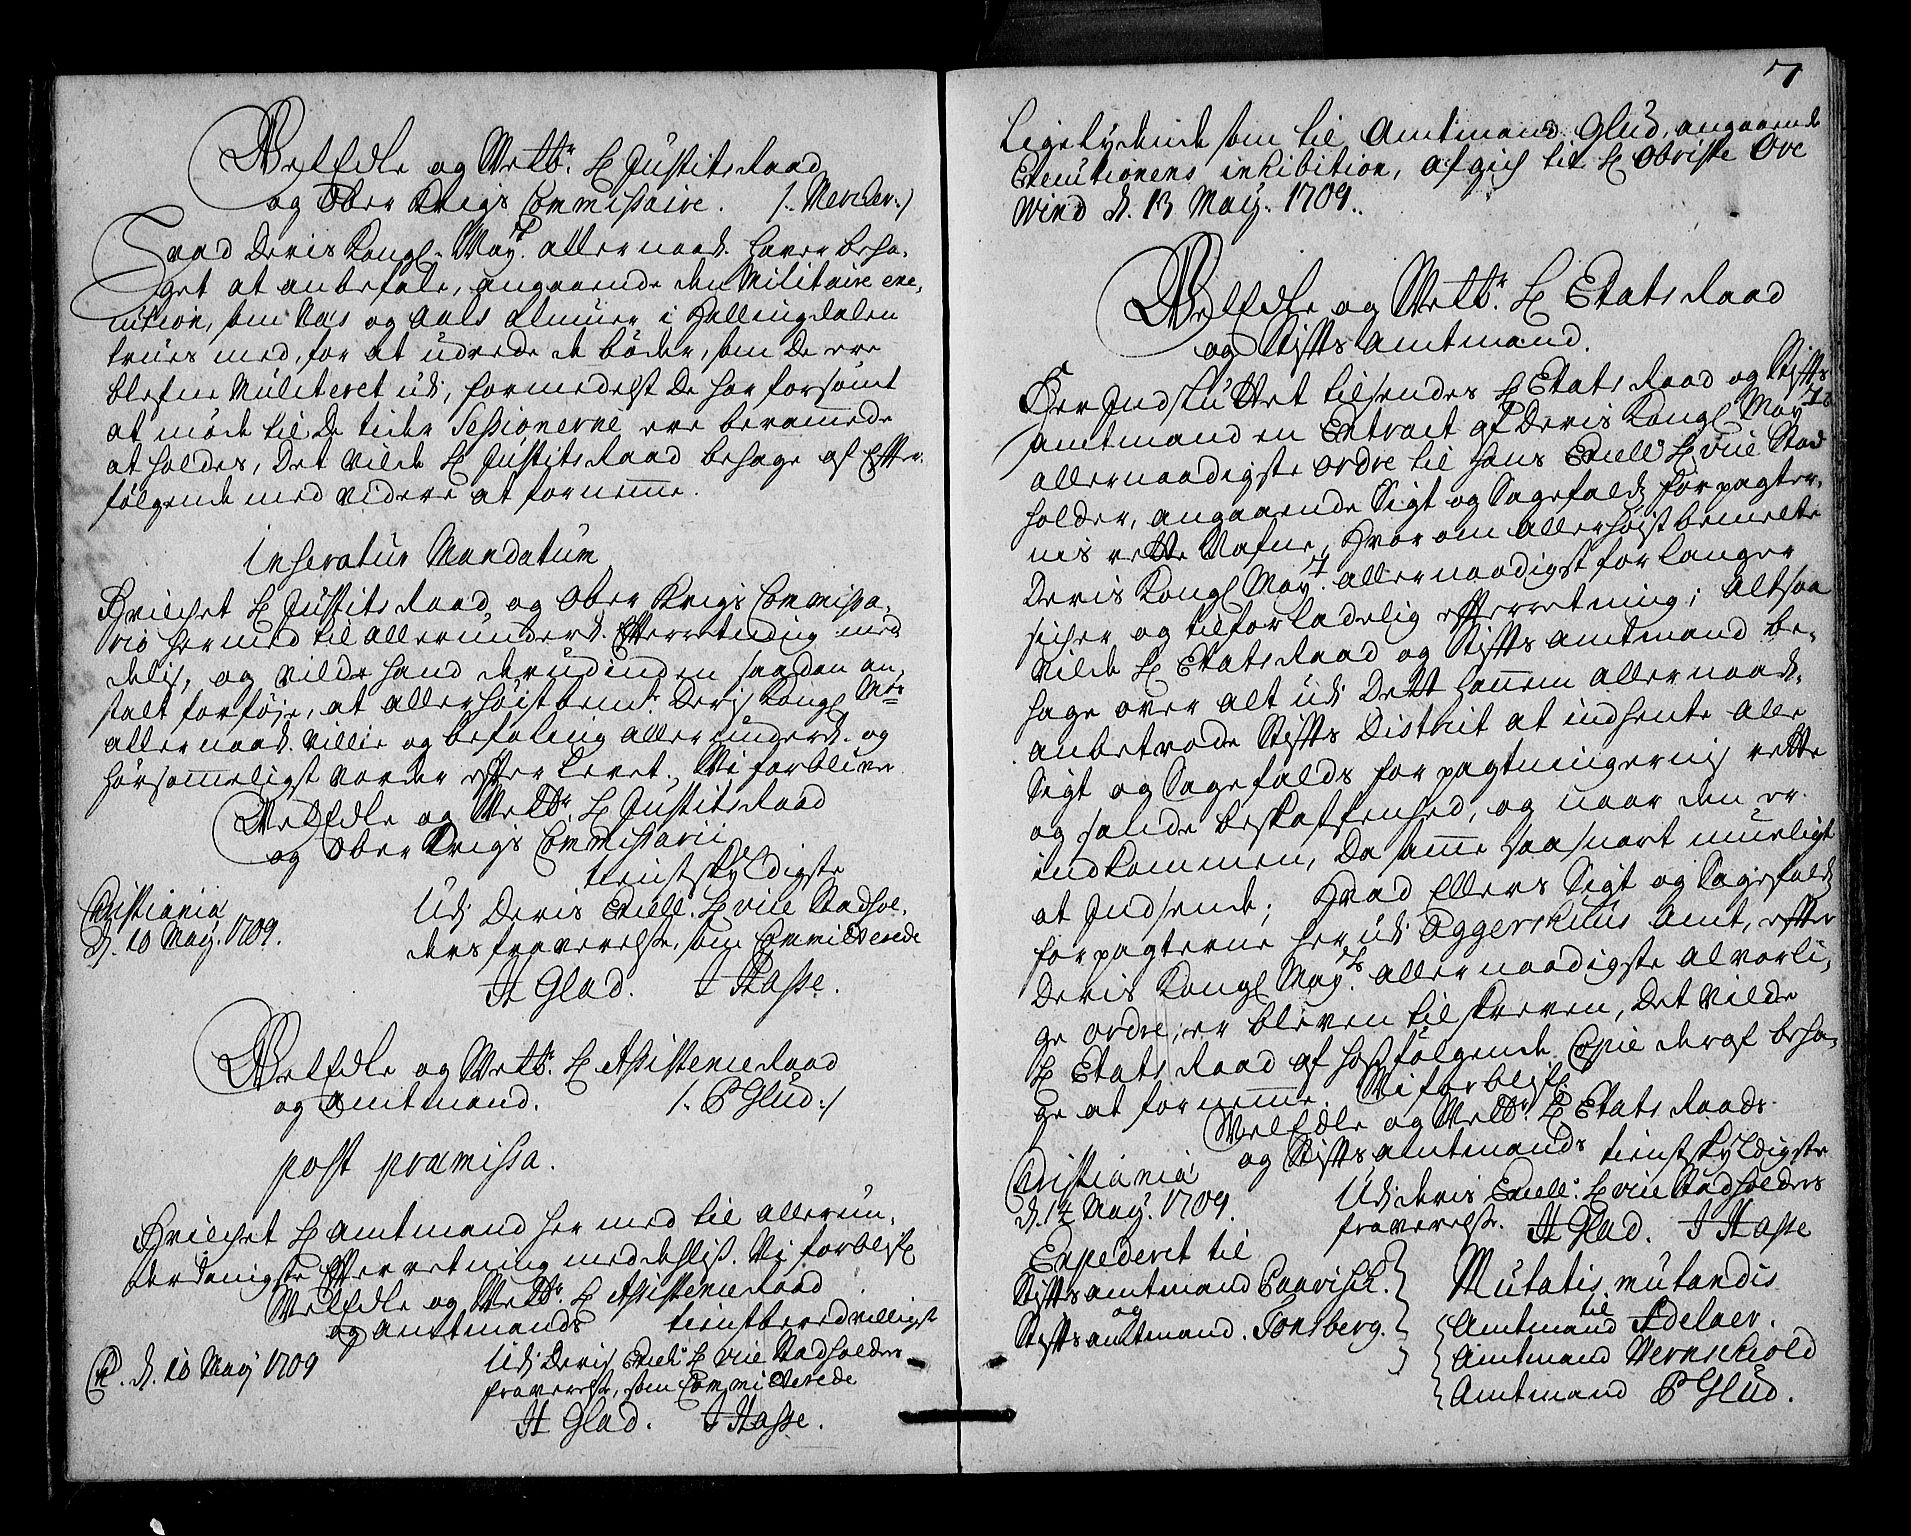 WelEdle og Welb: H Justits Raad
og Ober Krigs Commissaire. /: Mercker :/
Hvad Deris Kongl. May.t allernaad. haver beha-
get at anbefale, angaaende den Militaire exe-
cution, som Næs og Aals Almuer i Hallingdalen
trues med, for at udrede de bøder, som de ere
blefne mulcteret udi, formedelst de har forsømt
at møde til de tider Sessionerne ere berammede
at holdes, Det vilde H Justits Raad behage af Effter-
følgende med videre at fornemme.
Inseratur Mandatum
Hvilchet H Justits Raad og Ober Krigs Commissa-
rio hermed til allerunderd. Efterretning med
delis, og vilde hand derudinden saadan an-
stalt forføje, at allerhøistbem.te Deris Kongl Ma.ts
allernaad. Villie og befaling allerunderd. og
hørsommeligst vorder efterlevet. Vi forblive
WelEdle og Welb: H Justits Raad
og Ober Krigs Commissarii
tienstskyldigste
Christiania
d. 10 May. 1709.
Udi Deris Excell. H vice Stadhol-
ders fraverelse, som Committerede
H Glad. I Hasse.
WelEdle og Welb: H Assistence Raad
og Amtmand. /: P Glud :/
post præmissa.
Hvilchet H Amtmand her med til allerun-
derdanigste Efterretning meddeelis. Vi forblife
WelEdle og Welb: H Assistence Raad
og Amtmands tienstberedvilligst
Ch. d. 10 May 1709
Udi Deris Excell: H vice Stadholders
fraverelse, som Committerede
H Glad. I Hasse.
7
Ligelydende som til Amtmand Glud, angaaende
Executionens inhibition, afgich til H Obriste Ove
Wind d. 13 May. 1709.
WelEdle og Welb: H Etats Raad
og Stifts Amtmand.
Her Indsluttet tilsendes H Etats Raad og Stifts
amtmand en Extract af Deris Kongl May.ts
allernaadigste ordre til Hans Excell H vice Stad
holder, angaaende Sigt og Sagefalds forpagter-
nis rette Nafne, Hvorom allerhøistbemelte
Deris Kongl May.t allernaadigst forlanger
sicher og tilforladelig efterretning; Altsaa
vilde H Etats Raad og Stifts amtmand be-
hage over alt udi Dett hannem allernaad.
anbetrode Stifts District at indhente alle
Sigt og Sagefalds forpagtningernis rette
og sande beskaffenhed, og naar den er
indkommen, da samme saa snart mueligt
at Indsende; Hvad Ellers Sigt og Sagefalds
forpagterne her udi Aggershuus Amt, efter
Deris Kongl May.ts allernaadigste alvorli-
ge ordre, er bleven tilskreven, Det vilde
H Etats Raad af hosfølgende Copie deraf beha-
ge at fornemme. Vi forblife
WelEdle og Welb: H Etats Raads
og Stifts amtmands tienstskyldigste
Christiania
d. 14 May. 1709.
Udi Deris Excell: H vice Stadholders
fraverelse. H Glad. I Hasse
Expederet til
Stifts amtmand Paavisch.
og
Stifts amtmand. Tonsberg.
Mutatis mutandis
til
Amtmand Adelaer.
Amtmand Wernschiold
Amtmand P Glud.